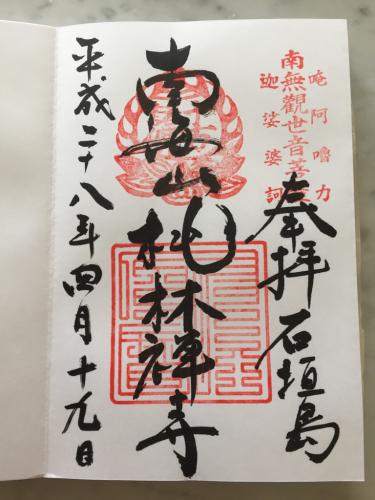 唵阿嚕力
南無觀世音菩
迦娑婆訶
奉拝 石垣島
南海山桃林禅寺
平成二十八年四月十九日